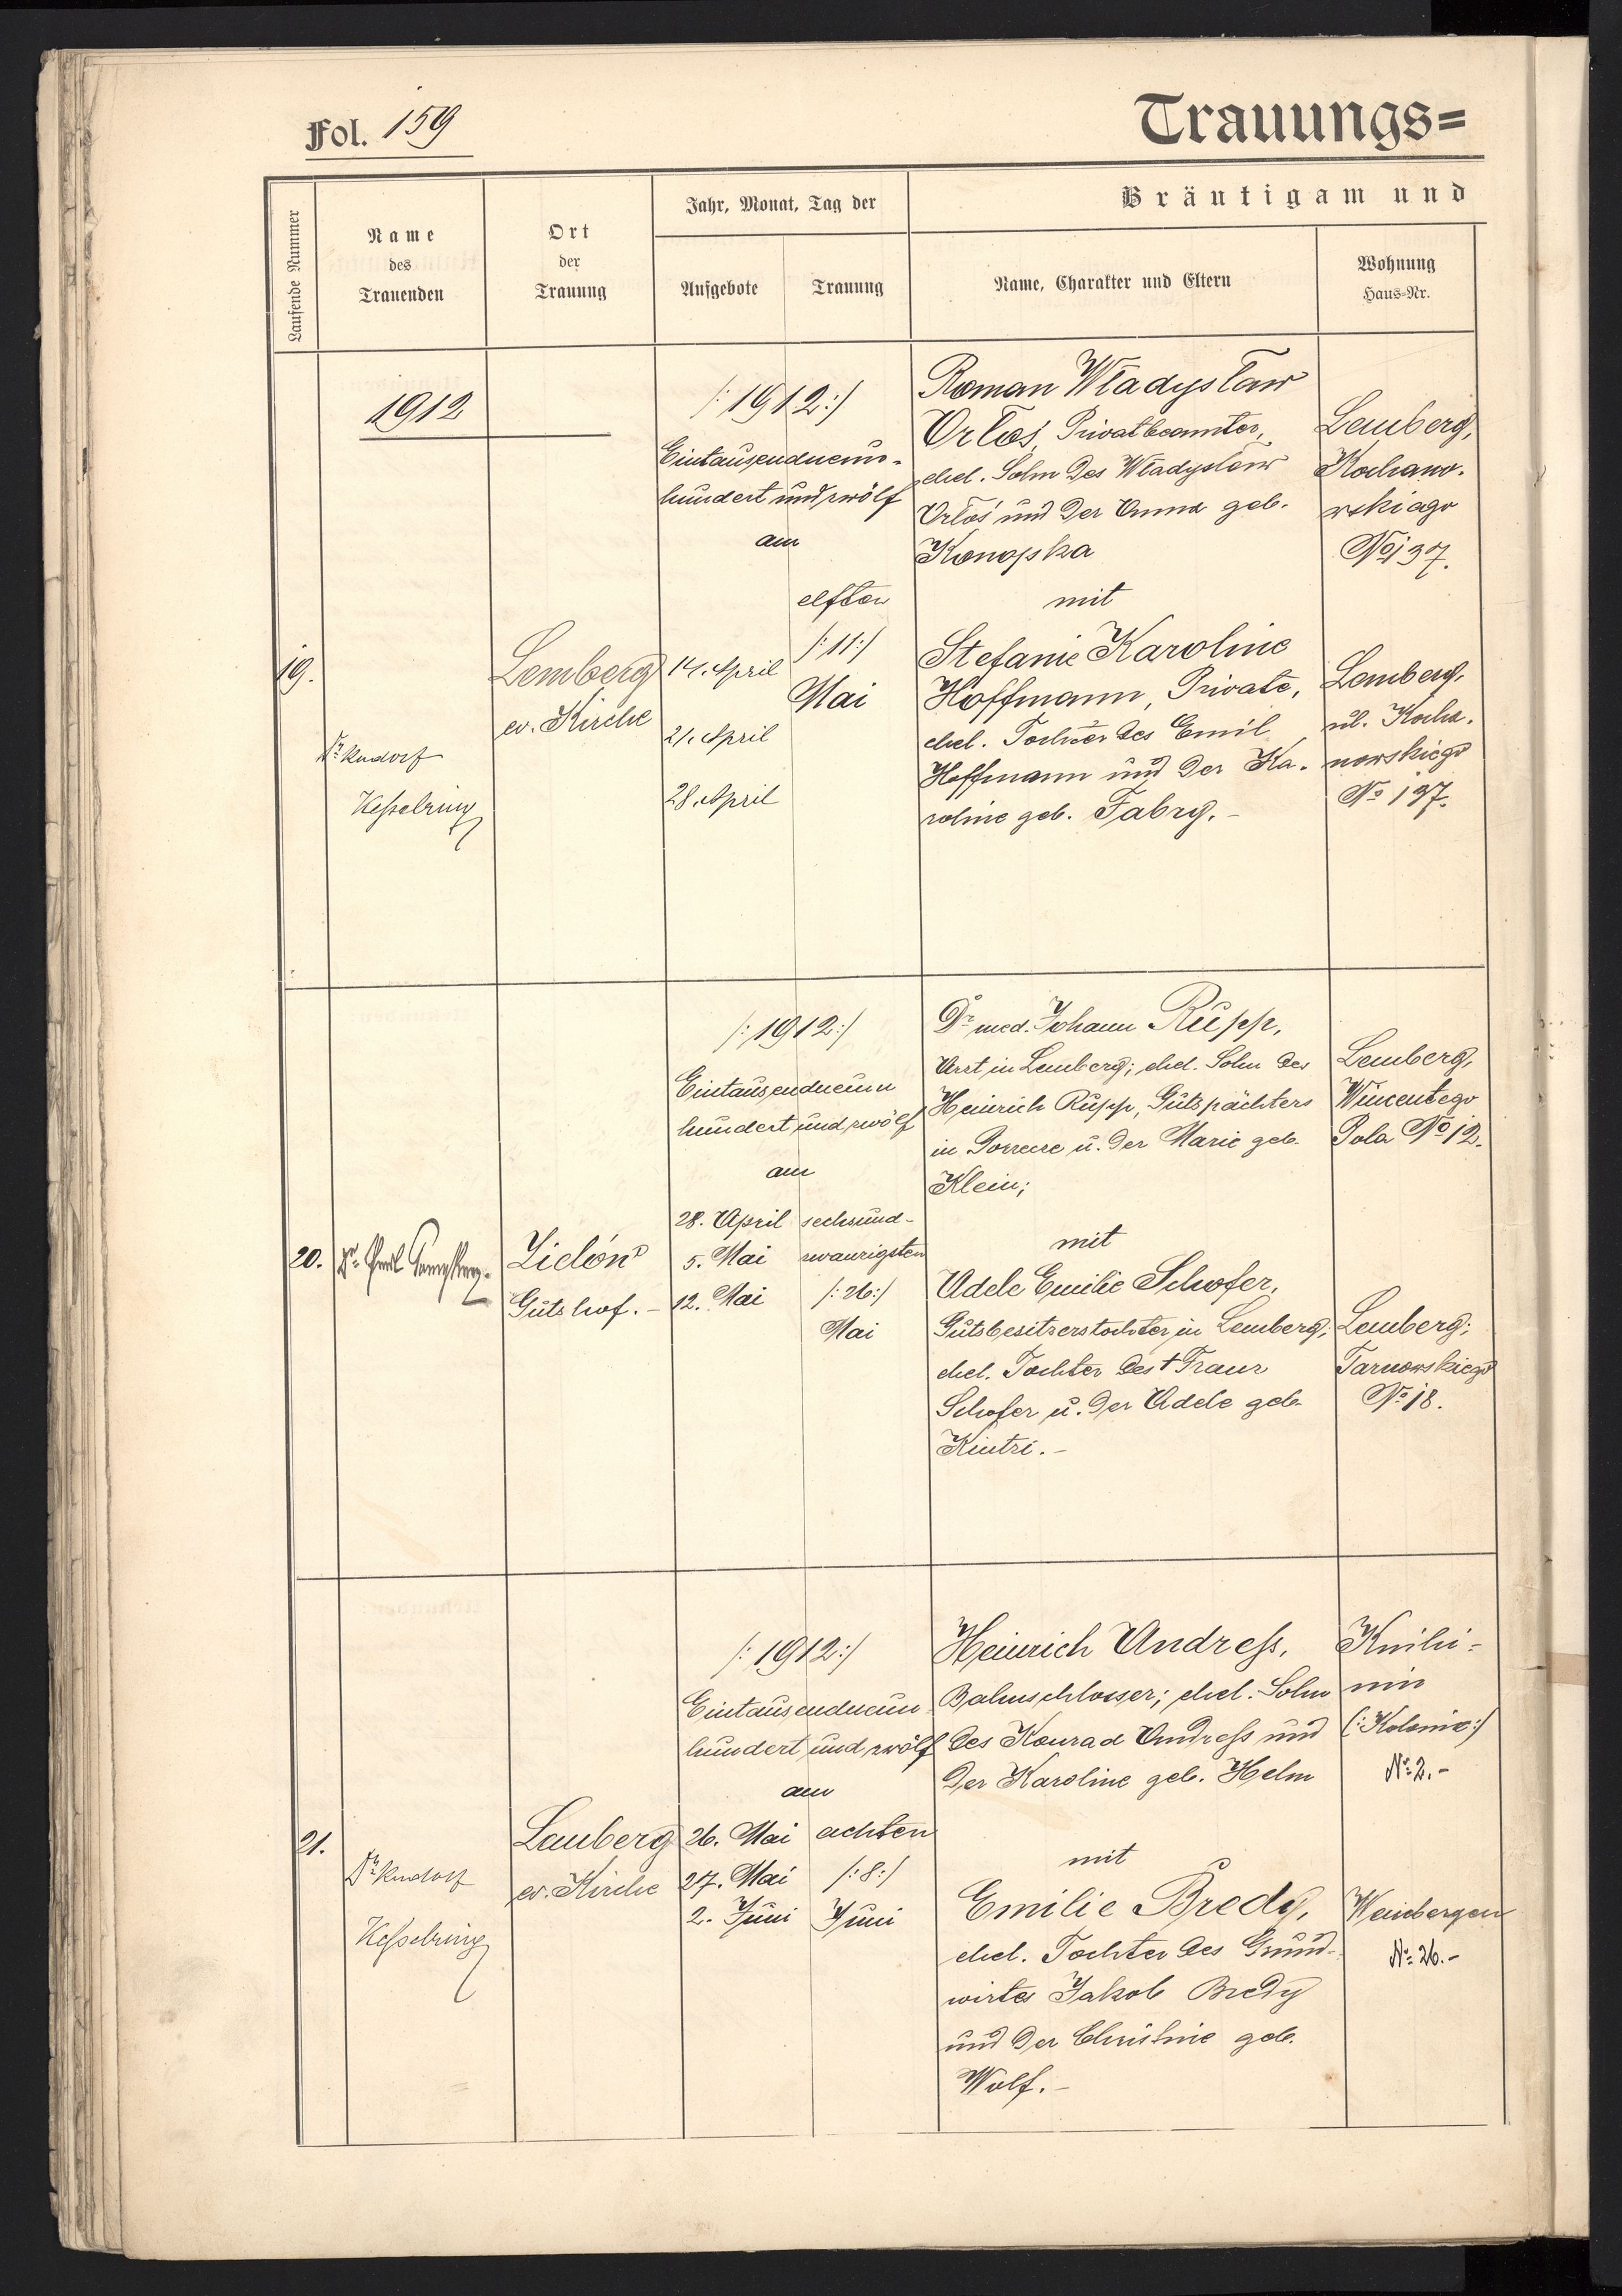 Fol. 159
Trauungs=
Laufende Nummer
Name
des
Trauenden
Ort
der
Trauung
Jahr, Monat, Tag der
Aufgebote
Trauung
Bräutigam und
Name, Charakter und Eltern
Wohnung
Haus=Nr.
1912
/: 1912 :/
Eintausendneun-
hundert und zwölf
am
elften
/: 11 :/
Mai
19.
Dr. Rudolf
Kesselring
Lemberg
ev. Kirche
14. April
21. April
28. April
Roman Władysław
Orłoś, Privatbeamter,
ehel. Sohn des Władysław
Orłoś und der Anna geb.
Konopka
mit
Stefanie Karoline
Hoffmann, Private,
ehel. Tochter des Emil
Hoffmann und der Ka-
roline geb. Fabry. -
Lemberg,
Kochano-
wskiago
No 137.
Lemberg,
ul. Kocha-
nowskiego
No 137.
20.
Dr.
Gutshof. -
/: 1912 :/
Eintausendneun
hundert und zwölf
am
28. April
5. Mai
12. Mai
sechsund-
zwanzigsten
/: 26 :/
Mai
Dr. med. Johann Rupp,
Arzt in Lemberg; ehel. Sohn des
Heinrich Rupp, Gutspächters
in u. der Marie geb.
Klein;
mit
Adele Emilie Schofer,
Gutsbesitzerstochter in Lemberg;
ehel. Tochter des † Franz
Schofer u. der Adele geb.
Kintzi. -
Lemberg,
Wincentego
Pola No 12.
Lemberg;
Tarnowskiego
No 18.
21.
Dr. Rudolf
Kesselring
Lemberg
ev. Kirche
/: 1912 :/
Eintausendneun
hundert und zwölf
am
26. Mai
27. Mai
2. Juni
achten
/: 8 :/
Juni
Heinrich Andress,
Bahnschlosser; ehel. Sohn
des Konrad Andress und
der Karoline geb. Helm
mit
Emilie Bredy,
ehel. Tochter des Grund-
wirtes Jakob Bredy
und der Christine geb.
Wolf. -
Knihi-
nin
(: Kolonie :)
No 2. -
Weinbergen
No 26. -